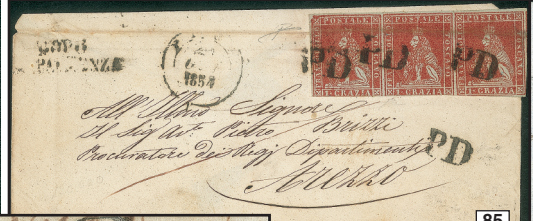 DOPO
PARTENZA
1854
POSTALE POSTALE POSTALE
1·CRAZIA 1·CRAZIA 1·CRAZIA
PD PD PD
All' Illmo Signore
Il Sig Avv. Pietro Brizzi
Procuratore dei Regj Dipartimenti
PD
Arezzo
85